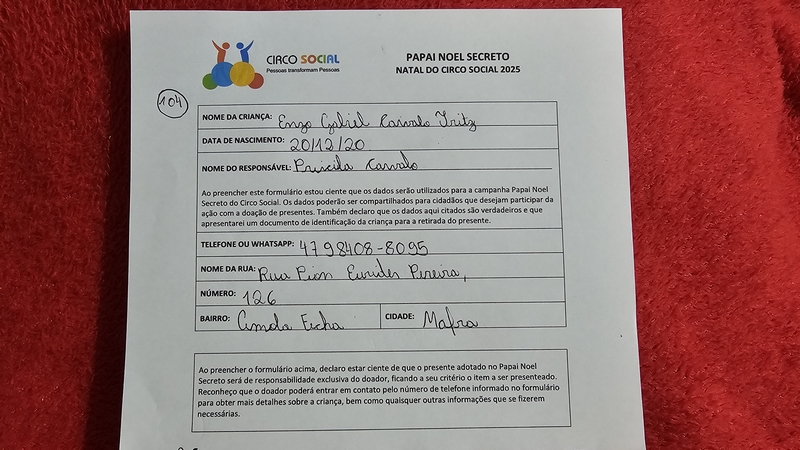 CIRCO SOCIAL
Pessoas transformam Pessoas
PAPAI NOEL SECRETO
NATAL DO CIRCO SOCIAL 2025
104
NOME DA CRIANÇA: Enzo Gabriel Carvalo Tritz
DATA DE NASCIMENTO: 20/12/20
NOME DO RESPONSÁVEL: Priscila Carvalo
Ao preencher este formulário estou ciente que os dados serão utilizados para a campanha Papai Noel
Secreto do Circo Social. Os dados poderão ser compartilhados para cidadãos que desejam participar da
ação com a doação de presentes. Também declaro que os dados aqui citados são verdadeiros e que
apresentarei um documento de identificação da criança para a retirada do presente.
TELEFONE OU WHATSAPP: 47 98408-8095
NOME DA RUA: Rua Pion Eurides Pereira,
NÚMERO: 126
BAIRRO: CIDADE: Mafra
Ao preencher o formulário acima, declaro estar ciente de que o presente adotado no Papai Noel
Secreto será de responsabilidade exclusiva do doador, ficando a seu critério o item a ser presenteado.
Reconheço que o doador poderá entrar em contato pelo número de telefone informado no formulário
para obter mais detalhes sobre a criança, bem como quaisquer outras informações que se fizerem
necessárias.